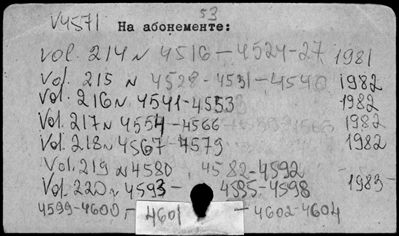 V4571 53
На абонементе:
Vol. 214 N 4516-4524-27 1981
Vol. 215 N 4528-4531-4540 1982
Vol. 216 N. 4541-4553 1982
Vol. 217 N 4554-4566 1982
Vol. 218 N 4567-4579 1982
Vol. 219 N 4580 4582-4592
Vol. 220 N 4593- 4595-4598 1983-
4599-4600,- 4601 -4602-4604